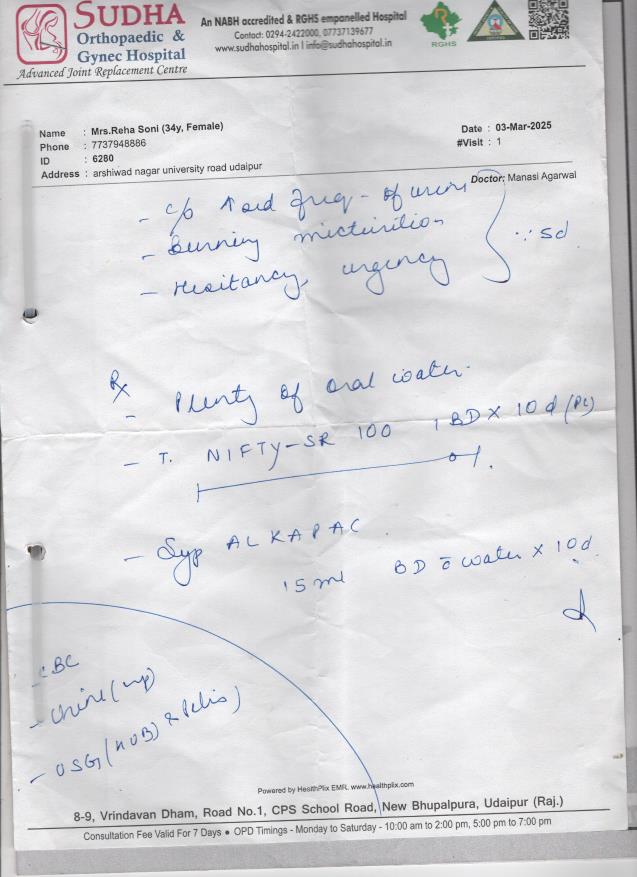 SUDHA
Orthopaedic &
Gynec Hospital
Advanced Joint Replacement Centre
An NABH accredited & RGHS empanelled Hospital
Contact: 0294-2422000, 07737139677
www.sudhahospital.in | info@sudhahospital.in
RGHS
Name : Mrs.Reha Soni (34y, Female)
Phone : 7737948886
ID : 6280
Address : arshiwad nagar university road udaipur
Date : 03-Mar-2025
#Visit : 1
Doctor: Manasi Agarwal
- c/o ↑ed freq - of urine
- Burning micturition
- Hesitancy, urgency
∵ 5d
Rx
- Plenty of oral water.
- T. NIFTY-SR 100 1 BD X 10 d (PC)
- Syp ALKAPAC
15 ml BD c̄ water X 10d.
- CBC
- Urine
- USG (KUB) & Pelvis)
Powered by HealthPlix EMR. www.healthplix.com
8-9, Vrindavan Dham, Road No.1, CPS School Road, New Bhupalpura, Udaipur (Raj.)
Consultation Fee Valid For 7 Days ● OPD Timings - Monday to Saturday - 10:00 am to 2:00 pm, 5:00 pm to 7:00 pm